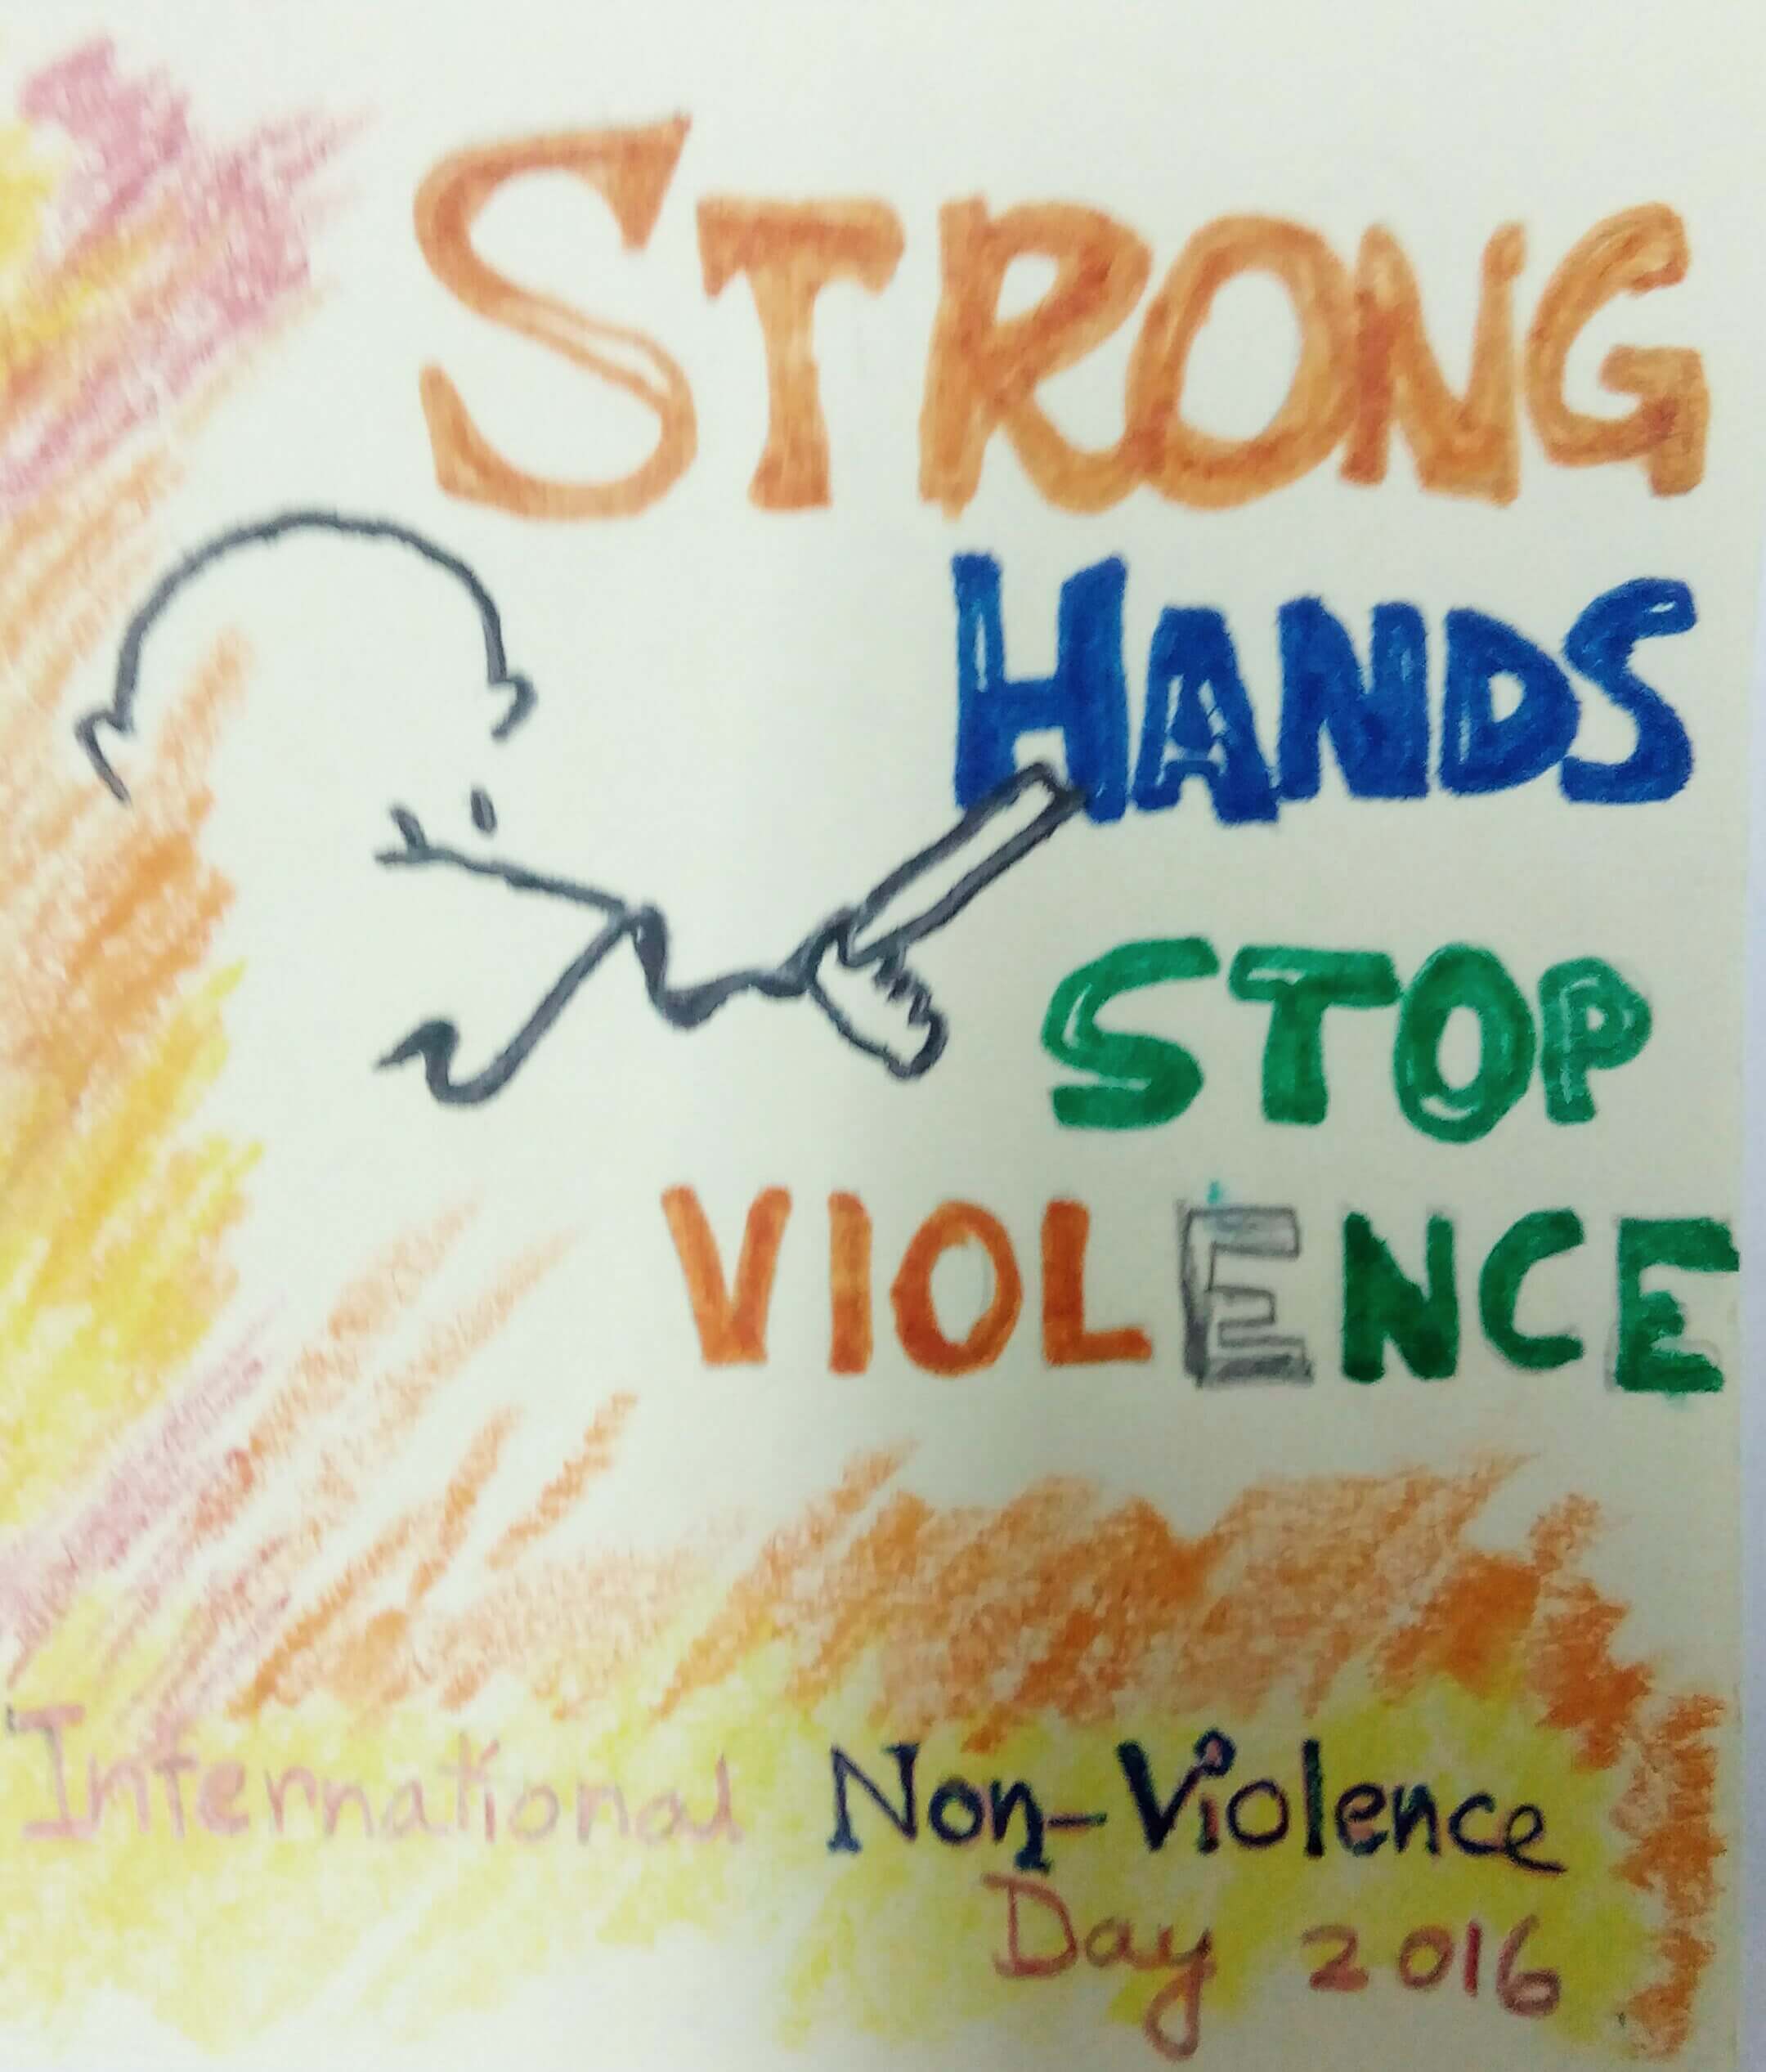 STRONG
HANDS
STOP
VIOLENCE
International Non-Violence
Day 2016